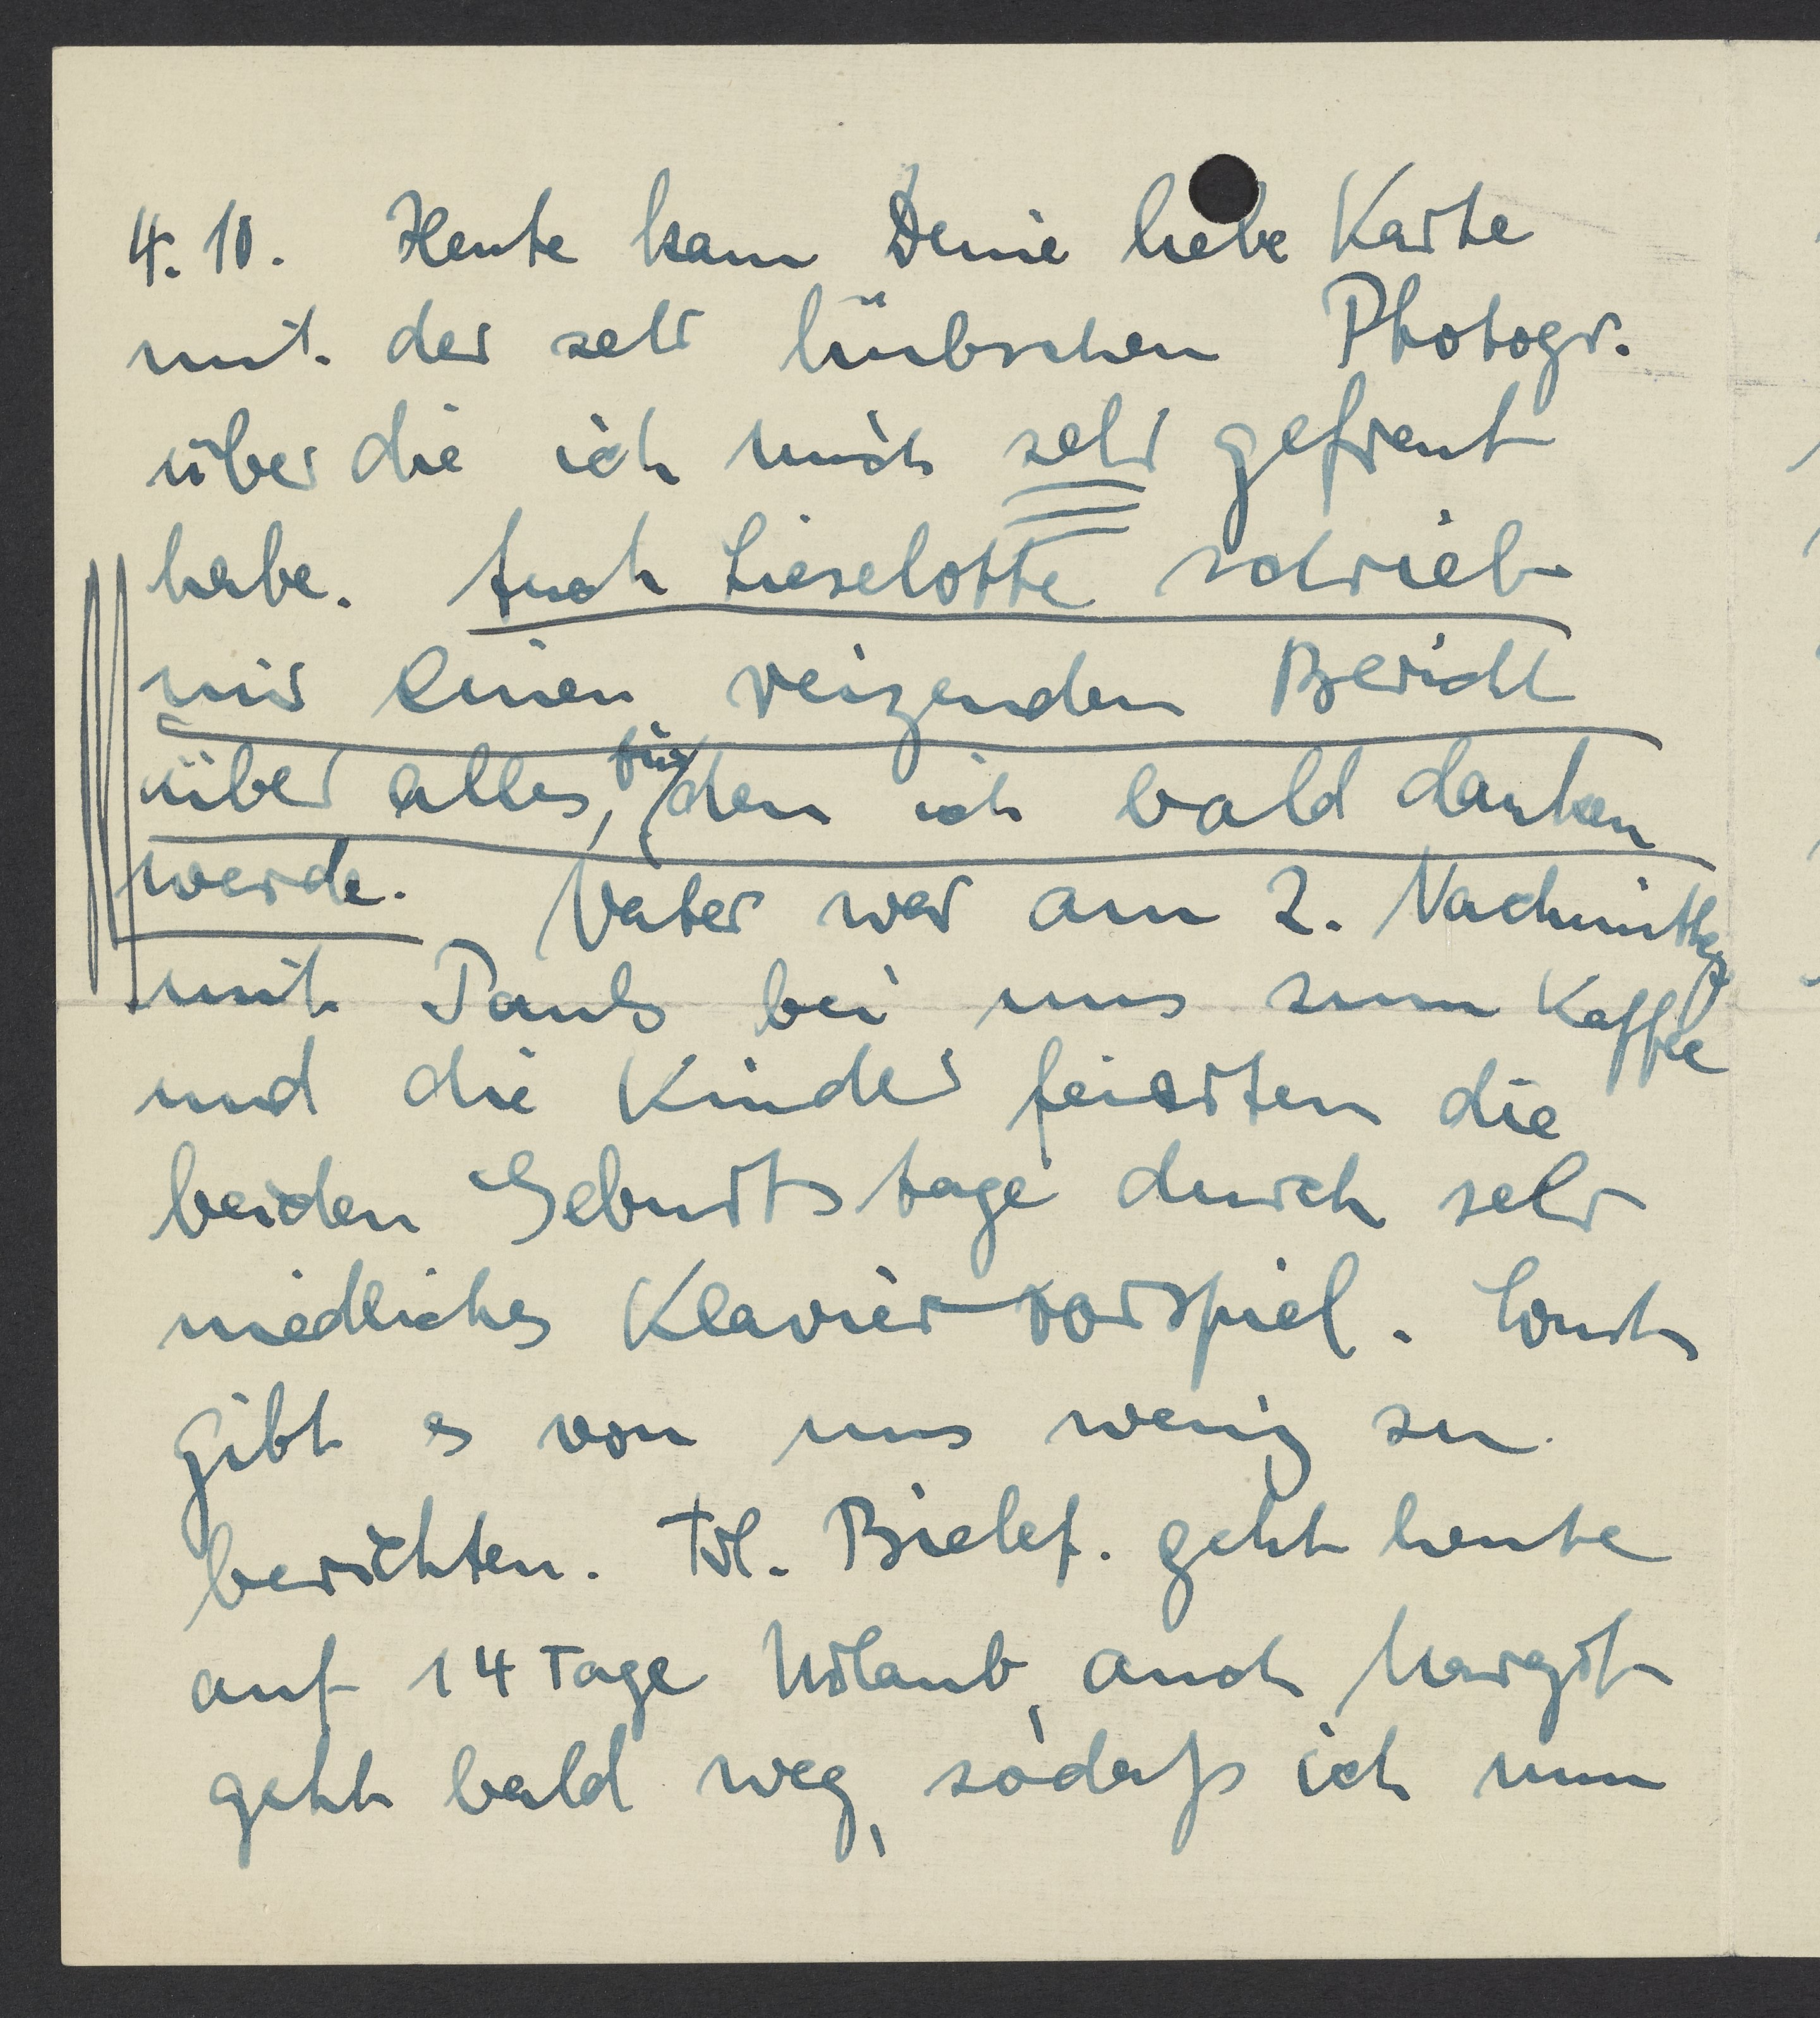 4. 10. Heute kam Deine liebe Karte
mit der sehr hübschen Photogr.
über die ich mich sehr gefreut
habe. Auch Lieselotte schrieb
mir einen reizenden Bericht
über alles, für den ich bald danken
werde. Vater war am 2. Nachmittag
mit Pauls bei uns zum Kaffee
und die Kinder feierten die
beiden Geburtstage durch sehr
niedliches Klavier-vorspiel. Sonst
gibt es von uns wenig zu
berichten. Frl. Bielef. geht heute
auf 14 Tage Urlaub, auch Margot
geht bald weg, sodaß ich nun